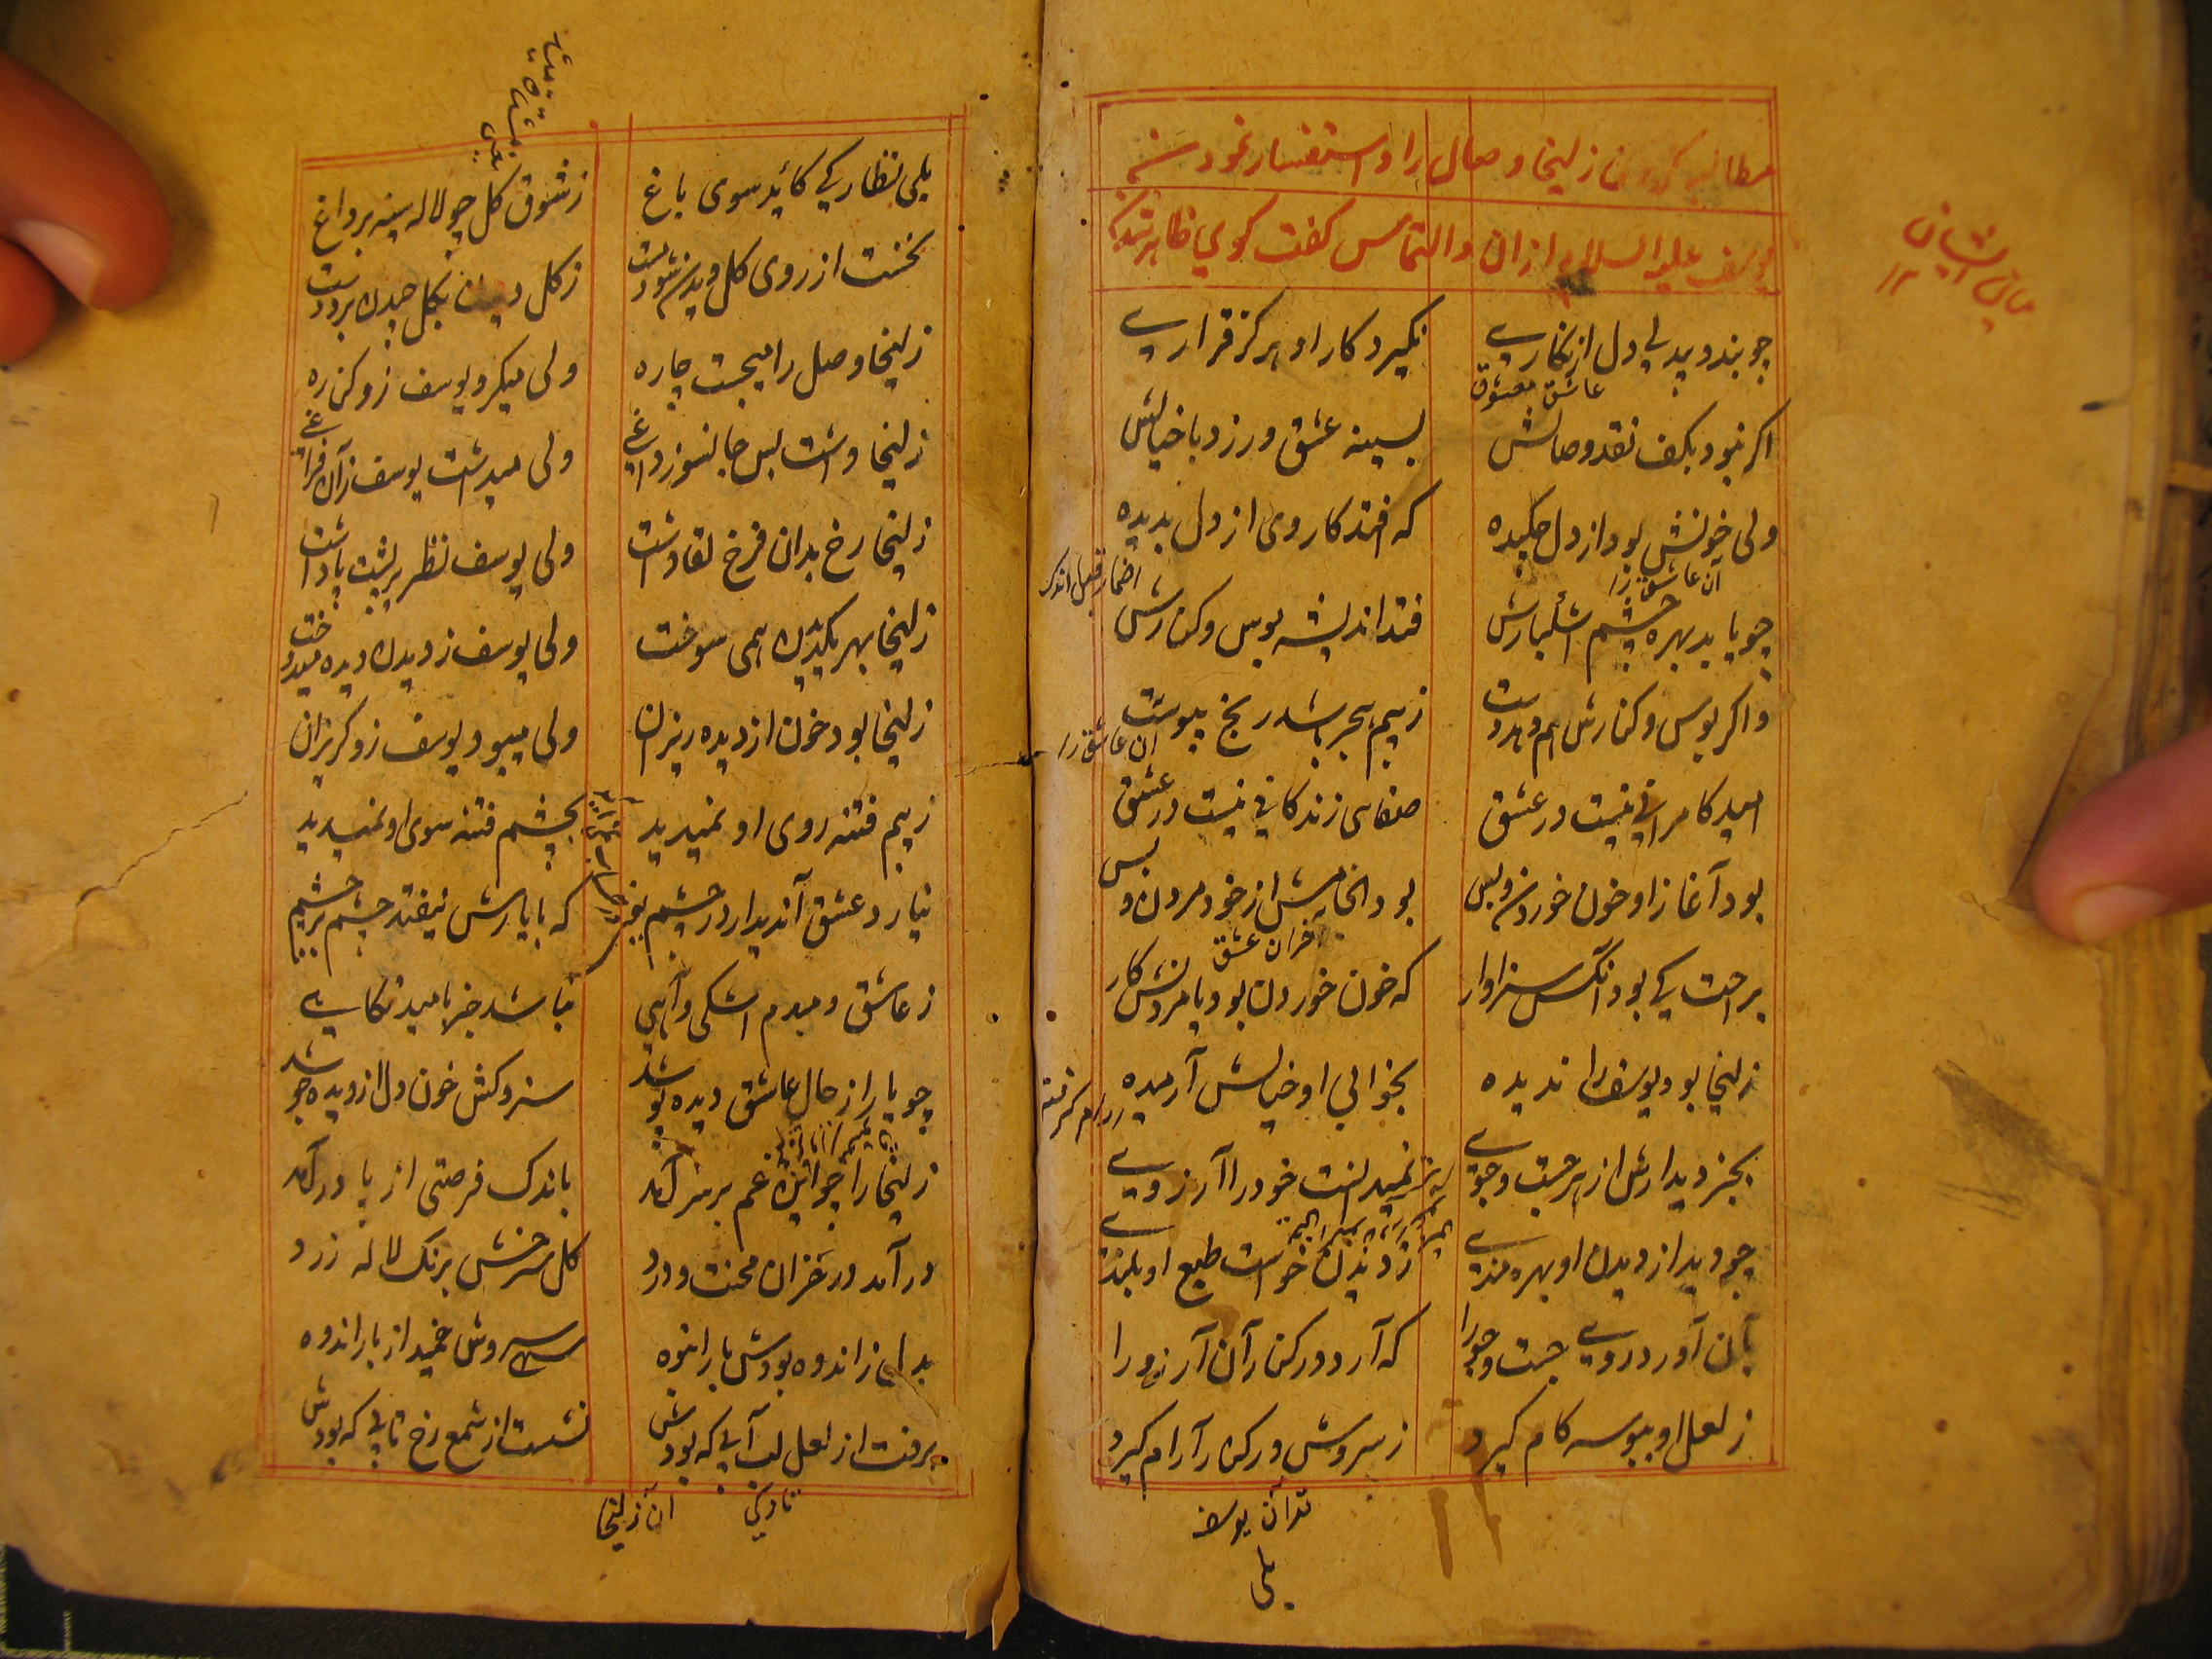 مطالبه کردن زلیخا وصال را و استفسار نمودن
یوسف علیه السلام ازان و التماس کفت کوی ظاهر شدن
چو بندد بیدلی دل از نکاری نکیرد کار او هرکز قراری
عاشق معشوق
اکر نبود بکف نقد وصالش بسینه عشق ورزد با خیالش
ولی خونش بود از دل چکیده که افتد کار وی از دل بدیده
آن عاشق را
چو یابد بهره چشم اشکبارش فتد اندیشه بوس و کنارش
و اکر بوس و کنارش هم دهد دست ز بیم هجر باشد رنج پیوست
آن عاشق را
امید کامرانی نیست در عشق صفای زندکانی نیست در عشق
بود آغاز او خون خوردن و بس بود انجامش از خود مردن و بس
براحت کی بود آنکس سزاوار که خون خوردن بود یا مردنش کار
زلیخا بود یوسف را ندیده بخوابی او خیالش آرمیده
بجز دیدارش از هر جست و جوی نمیدانست خود را آرزوی
چو دید از دیدن او بهره مندی ز دیدن خواست طبع او بلندی
بآن آورد روی جست و جو را که آرد در کنار آن آرزو را
ز لعل او ببوسه کام کیرد ز سروش در کنار آرام کیرد
بلی
بلی نظارکی کاید سوی باغ ز شوق کل چو لاله سینه بر داغ
نخست از روی کل دیدن شود مست ز کل دیدن بکل چیدن برد دست
زلیخا وصل را میجست چاره ولی میکرد یوسف زو کناره
زلیخا داشت بس جانسوز داغی ولی میداشت یوسف زان فراغی
زلیخا رخ بدان فرخ لقا داشت ولی یوسف نظر بر پشت پا داشت
زلیخا بهر یکدیدن همی سوخت ولی یوسف ز دیدن دیده میدوخت
زلیخا بود خون از دیده ریزان ولی میبود یوسف زو کریزان
ز بیم فتنه روی او نمیدید بچشم فتنه سوی او نمیدید
نیارد عشق آن دیدار در چشم که با یارش نیفتد چشم بر چشم
ز عاشق دمبدم اشکی و آهی نباشد جز بامید نکاهی
چو یار از حال عاشق دیده پوشد سزد کش خون دل از دیده جوشد
زلیخا را چو این غم بر سر آمد باندک فرصتی از پا در آمد
در آمد در خزان محنت و درد کل سرخش برنک لاله زرد
بدل ز اندوه بودش بار انبوه سهی سروش خمید از بار اندوه
برفت از لعل لب آبی که بودش نشست از شمع رخ تابی که بودش
آن زلیخا